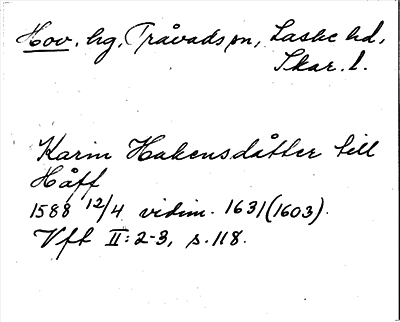 Hov, hg, Tråvads sn, Laske hd,
Skar. l.
Karin Hakensdåtter till
Håff
1588 12/4 vidim. 1631(1603).
Vft II:2-3, s.118.